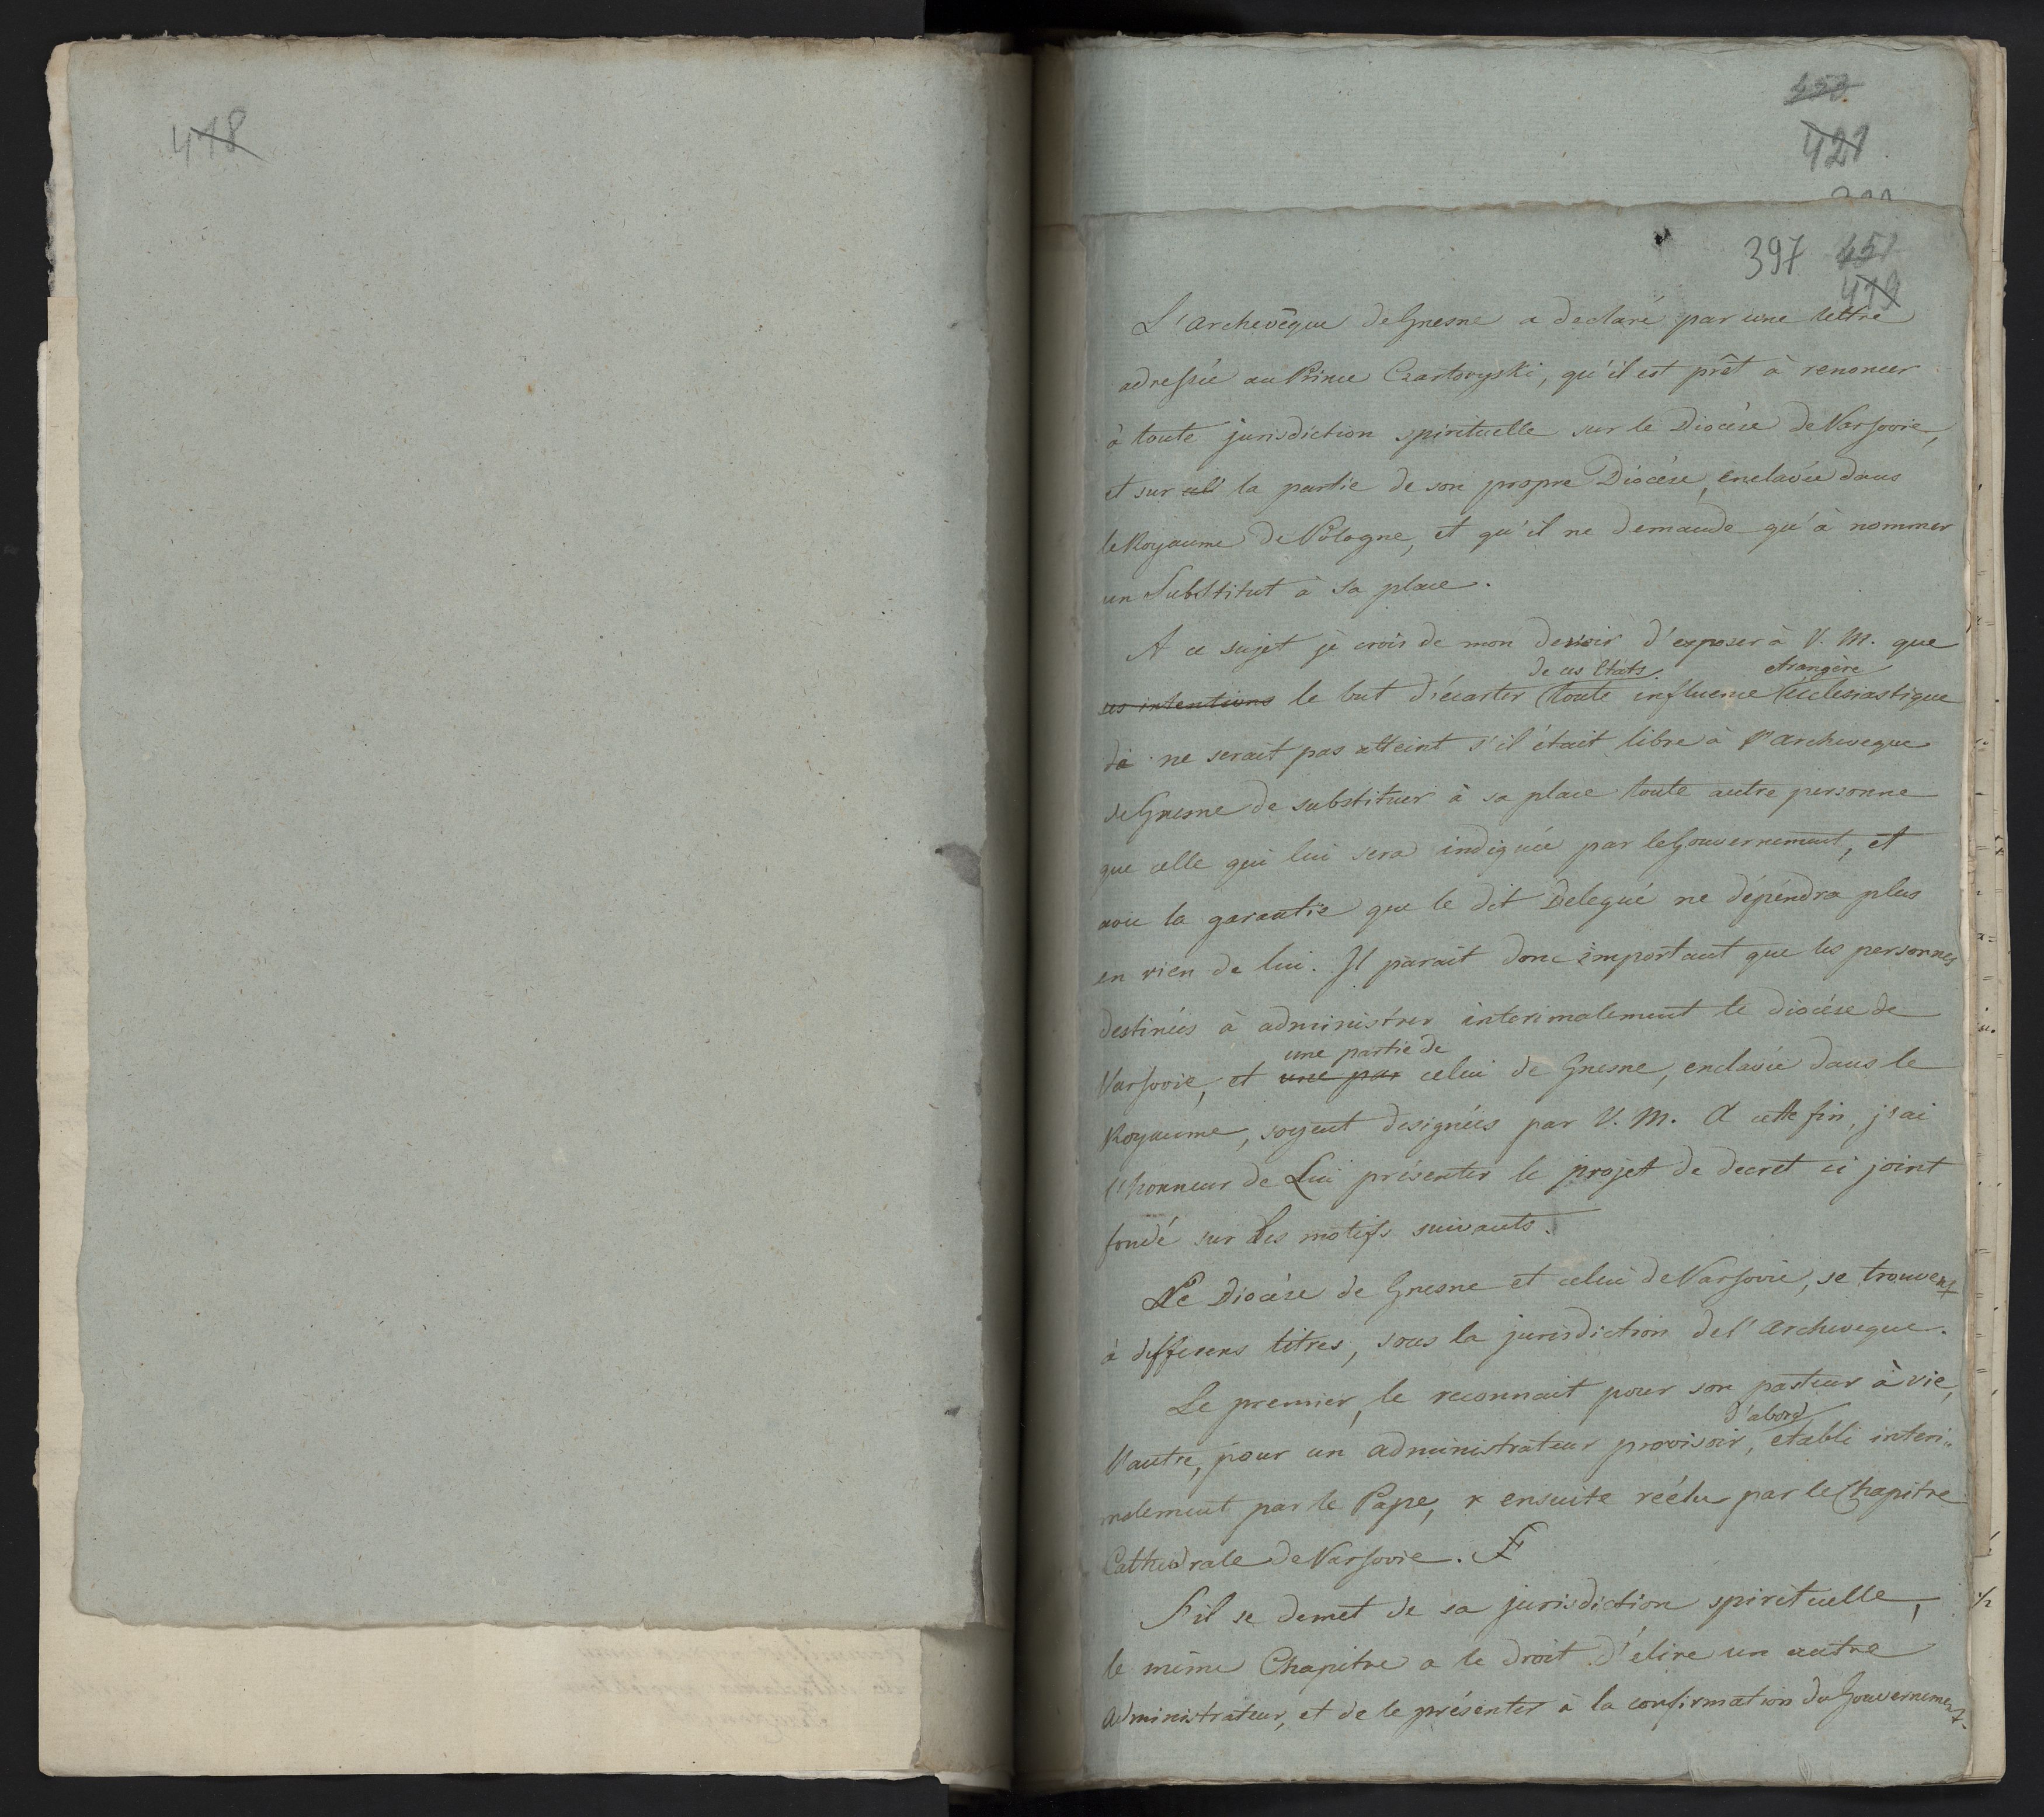 418
453
421
397 451
419
L'archevêque de Gnesne a declaré par une lettre
adressée au Prince Czartoryski, qu'il est prêt à renoncer
à toute jurisdiction spirituelle sur le Diocèse de Varsovie,
et sur la partie de son propre Diocèse, enclavée dans
le Royaume de Pologne, et qu'il ne demande qu'à nommer
un Substitut à sa place.
A ce sujet je crois de mon devoir d'exposer à V. M. que
de ces Etats. etrangère
ses intentions le but d'écarter toute influence ecclesiastique
ne serait pas atteint s'il était libre à l'archeveque
de Gnesne de substituer à sa place toute autre personne
que celle qui lui sera indiquée par le Gouvernement, et
avec la garantie que le dit Delegué ne dépéndra plus
en rien de lui. Il parait donc important que les personnes
destinées à administrer interimalement le diocése de
une partie de
Varsovie, et une par celui de Gnesne, enclavée dans le
Royaume, soyent designées par V. M. A cette fin, j'ai
l'honneur de Lui présenter le projet de decret ci joint
fondé sur les motifs suivants.
Le Diocèse de Gnesne et celui de Varsovie, se trouvent
à differens titres, sous la jurisdiction de l'archeveque.
Le premier, le reconnait pour son pasteur à vie,
d'abord
l'autre, pour un administrateur provisoir, etabli interi„
malement par le Pape, & ensuite réélu par le Chapitre
Cathedrale de Varsovie.
S'il se demet de sa jurisdiction spirituelle,
le même Chapitre a le droit d'élire un autre
administrateur, et de le présenter à la confirmation du Gouvernement.